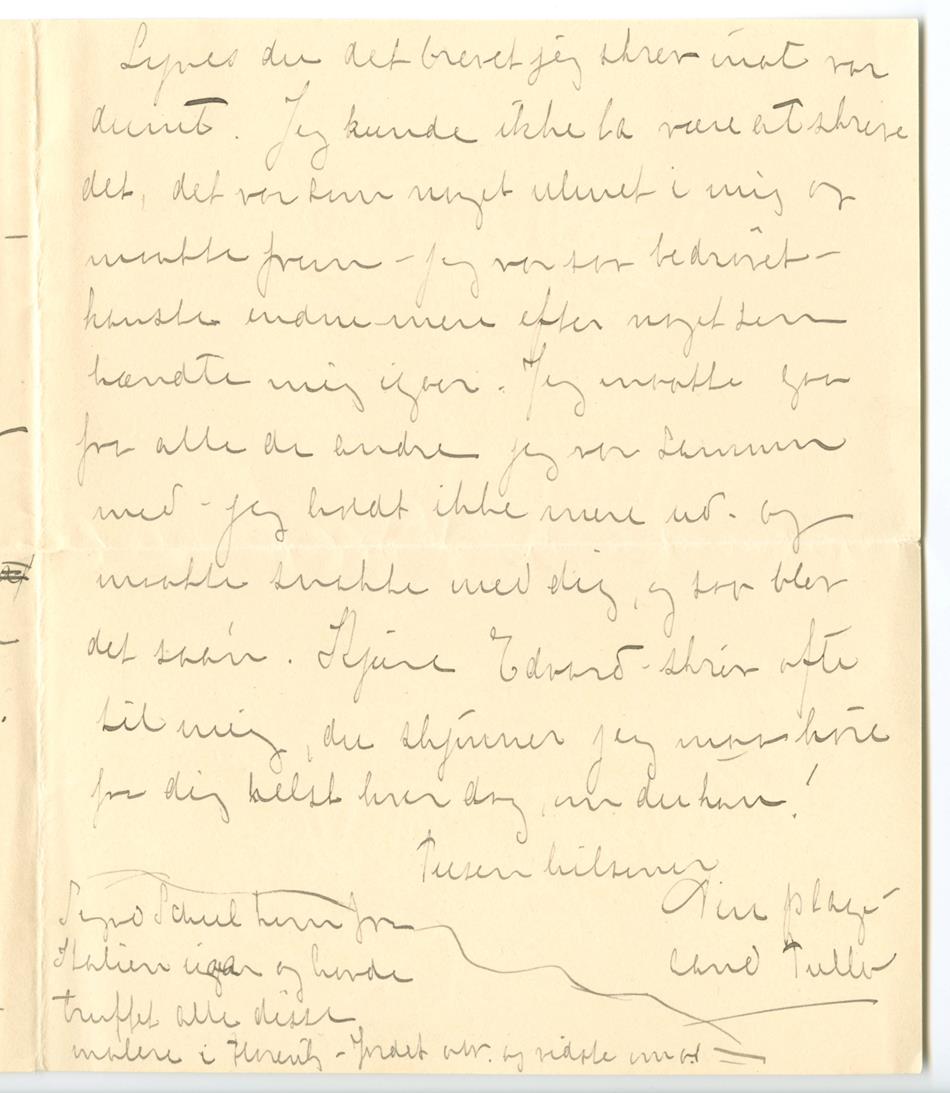 Synes du det brevet jeg skrev inat var
dumt. Jeg kunde ikke la være at skrive
det, det var som noget ulmet i mig og
maatte frem – jeg var saa bedrøvet –
kanske endnu mere efter noget som
hændte mig igaar. Jeg maatte gaa
fra alle de andre jeg var sammen
med – jeg holdt ikke mere ud. og
maatte snakke med dig, og saa blev
det saan. Kjære Edvard – skriv ofte
til mig, du skjønner jeg maa høre
fra dig helst hver dag, om du kan!
Tusen hilsener
Din plage-
aand Tulla
Sigurd kom fra
Italien igaar og havde
truffet alle disse
malere i Florentz – Jordet
og vidste